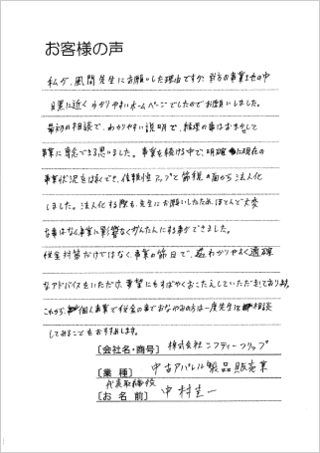 お客様の声
私が、風間先生にお願いした理由ですが、数多の事業主の中
目黒に近く わかりやすいホームページでしたのでお願いしました。
最初の相談で、わかりやすい説明で、経理の事はおまかせして
事業に専念できる思いました。事業を続ける中で、明確 た現在の
事業状況を ばくでき、信頼性アップと節税の面から法人化
しました。法人化する際も、先生にお願いしたため、ほとんど大変
な事はなく事業に影響なくかんたんに仕事ができました。
税金対策だけではなく、事業の節目で、 わかりやすく適確
なアドバイスをいただけ、要望にもすばやくおこたえしていただきております。
これから、 個人事業で税金の事でおなやみの方は一度先生に 相談
してみることをおすすめします。
[会社名・商号] 株式会社ニフティークラップ
[業 種] 中古アパレル製品販売業
代表取締役
[お 名 前] 中村圭一